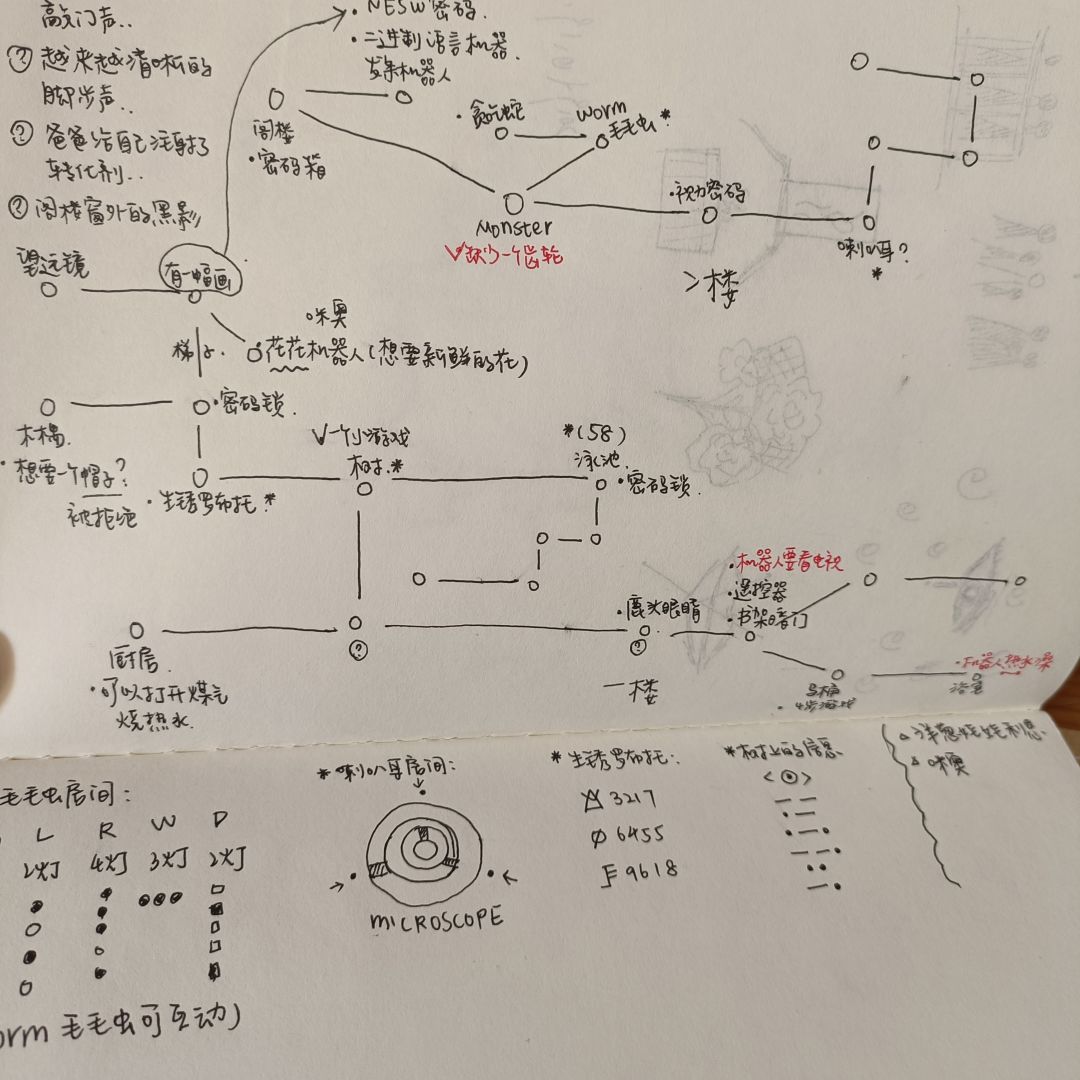 敲门声..
? 越来越清晰的
脚步声..
? 爸爸给自己注射了
转化剂..
? 阁楼窗外的黑影
· NESW密码.
· 二进制语言机器
发条机器人
阁楼
· 密码箱
· 贪吃蛇
worm
毛毛虫 *
Monster
√缺少一个齿轮
· 视力密码
喇叭耳?
*
二楼
望远镜
有一幅画
梯子.
咪奥
花花机器人(想要新鲜的花)
· 密码锁.
木桶.
· 想要一个帽子?
被拒绝
· 生锈罗布托 *
√一个小游戏
树. *
*(58)
泳池.
· 密码锁.
厨房.
· 可以打开煤气
烧热水.
?
· 鹿头眼睛
?
· 机器人要看电视
· 遥控器
· 书架暗门
· 机器人热水澡
浴室
一楼
毛毛虫房间:
L R W D
2灯 4灯 3灯 2灯
worm 毛毛虫可互动)
* 喇叭耳房间:
MICROSCOPE
* 生锈罗布托:
3217
6455
9618
* 树上的信息